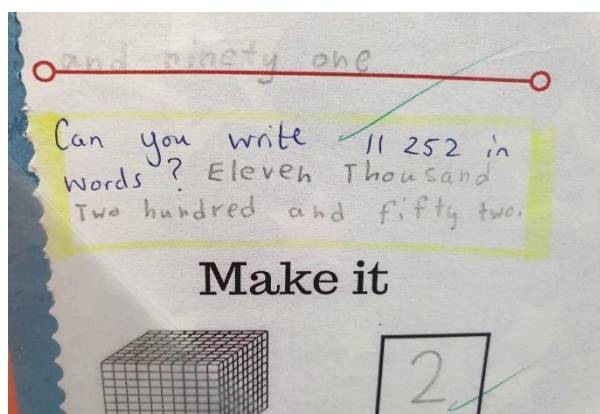 and ninety one
Can you write 11 252 in
words? Eleven Thousand
Two hundred and fifty two.
Make it
2